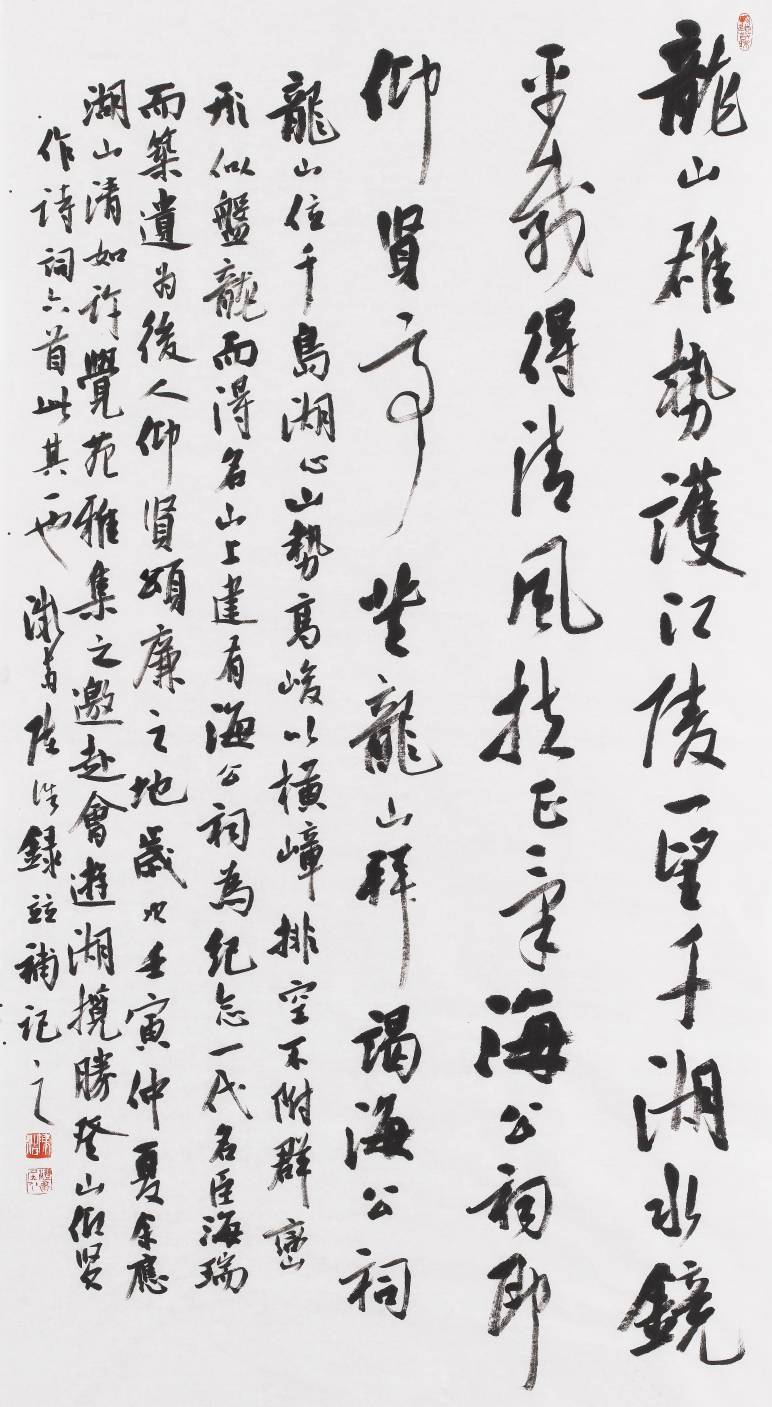 龍山雄勢護江陵一望千湖水鏡
平載得清風扶正氣海公祠即
仰賢亭 登龍山拜謁海公祠
龍山位千島湖心山勢高峻以橫嶂排空不附群巒
形似盤龍而得名山上建有海公祠為紀念一代名臣海瑞
而築遺為後人仰賢頌廉之地歲次壬寅仲夏余應
湖山清如許覺苑雅集之邀赴會遊湖攬勝登山仰賢
作詩詞六首此其一也 陳浩錄並補記之